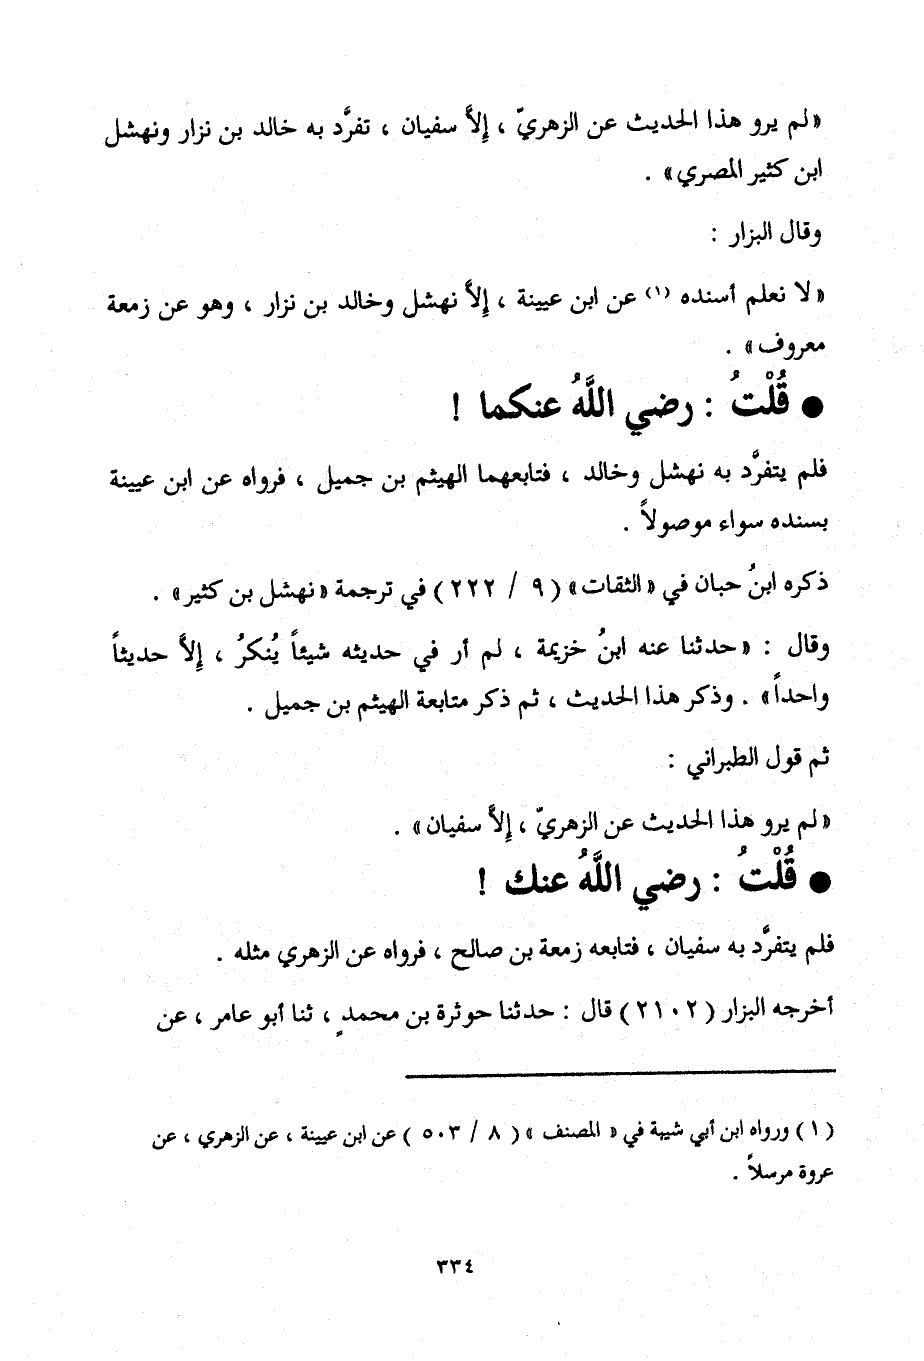 «لم يرو هذا الحديث عن الزهريّ ، إلاَّ سفيان ، تفرَّد به خالد بن نزار ونهشل
ابن كثير المصري» .
وقال البزار :
«لا نعلم أسنده (١) عن ابن عيينة ، إلاَّ نهشل وخالد بن نزار ، وهو عن زمعة
معروف» .
● قُلْتُ : رضي اللَّهُ عنكما !
فلم يتفرَّد به نهشل وخالد ، فتابعهما الهيثم بن جميل ، فرواه عن ابن عيينة
بسنده سواء موصولاً .
ذكره ابنُ حبان في «الثقات» ( ٩ / ٢٢٢ ) في ترجمة «نهشل بن كثير» .
وقال : «حدثنا عنه ابنُ خزيمة ، لم أر في حديثه شيئاً يُنكرُ ، إلاَّ حديثاً
واحداً» . وذكر هذا الحديث ، ثم ذكر متابعة الهيثم بن جميل .
ثم قول الطبراني :
«لم يرو هذا الحديث عن الزهريّ ، إلاَّ سفيان» .
● قُلْتُ : رضي اللَّهُ عنك !
فلم يتفرَّد به سفيان ، فتابعه زمعة بن صالح ، فرواه عن الزهري مثله .
أخرجه البزار ( ٢١٠٢ ) قال : حدثنا حوثرة بن محمدٍ ، ثنا أبو عامر ، عن
( ١ ) ورواه ابن أبي شيبة في « المصنف » ( ٨ / ٥٠٣ ) عن ابن عيينة ، عن الزهري ، عن
عروة مرسلاً .
٣٣٤